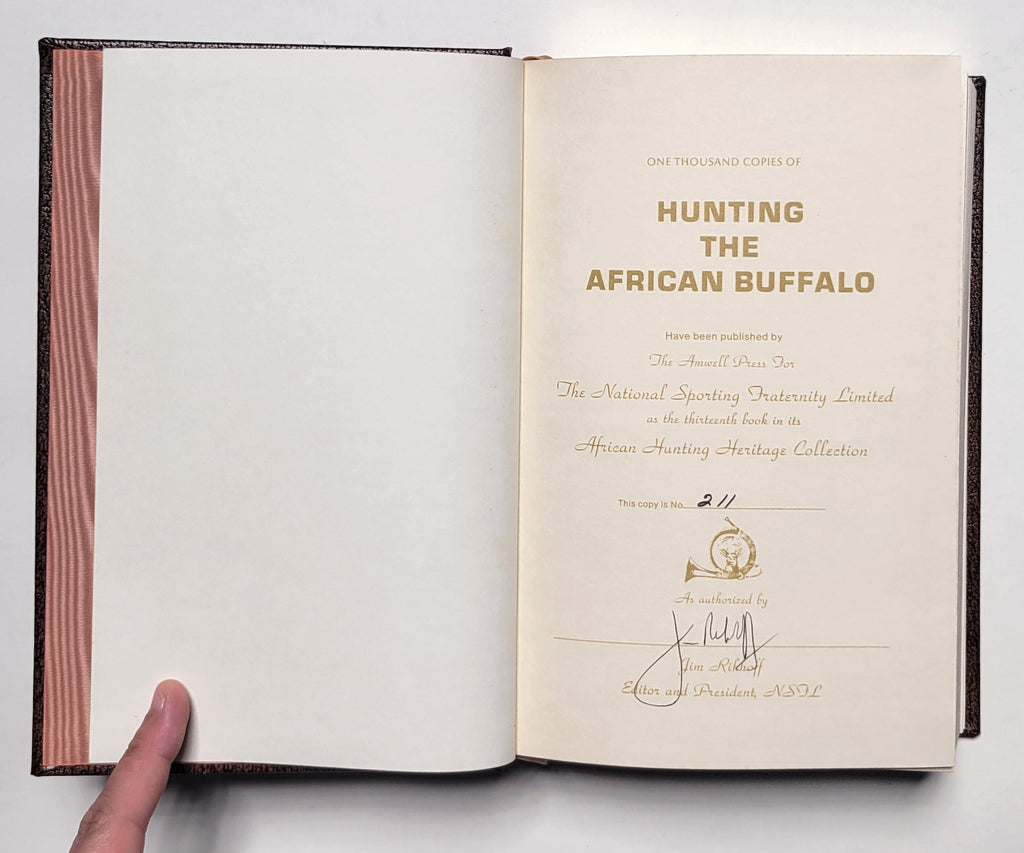 ONE THOUSAND COPIES OF
HUNTING
THE
AFRICAN BUFFALO
Have been published by
The Amwell Press For
The National Sporting Fraternity Limited
as the thirteenth book in its
African Hunting Heritage Collection
This copy is No. 211
As authorized by
Jim Rikhoff
Jim Rikhoff
Editor and President, NSFL